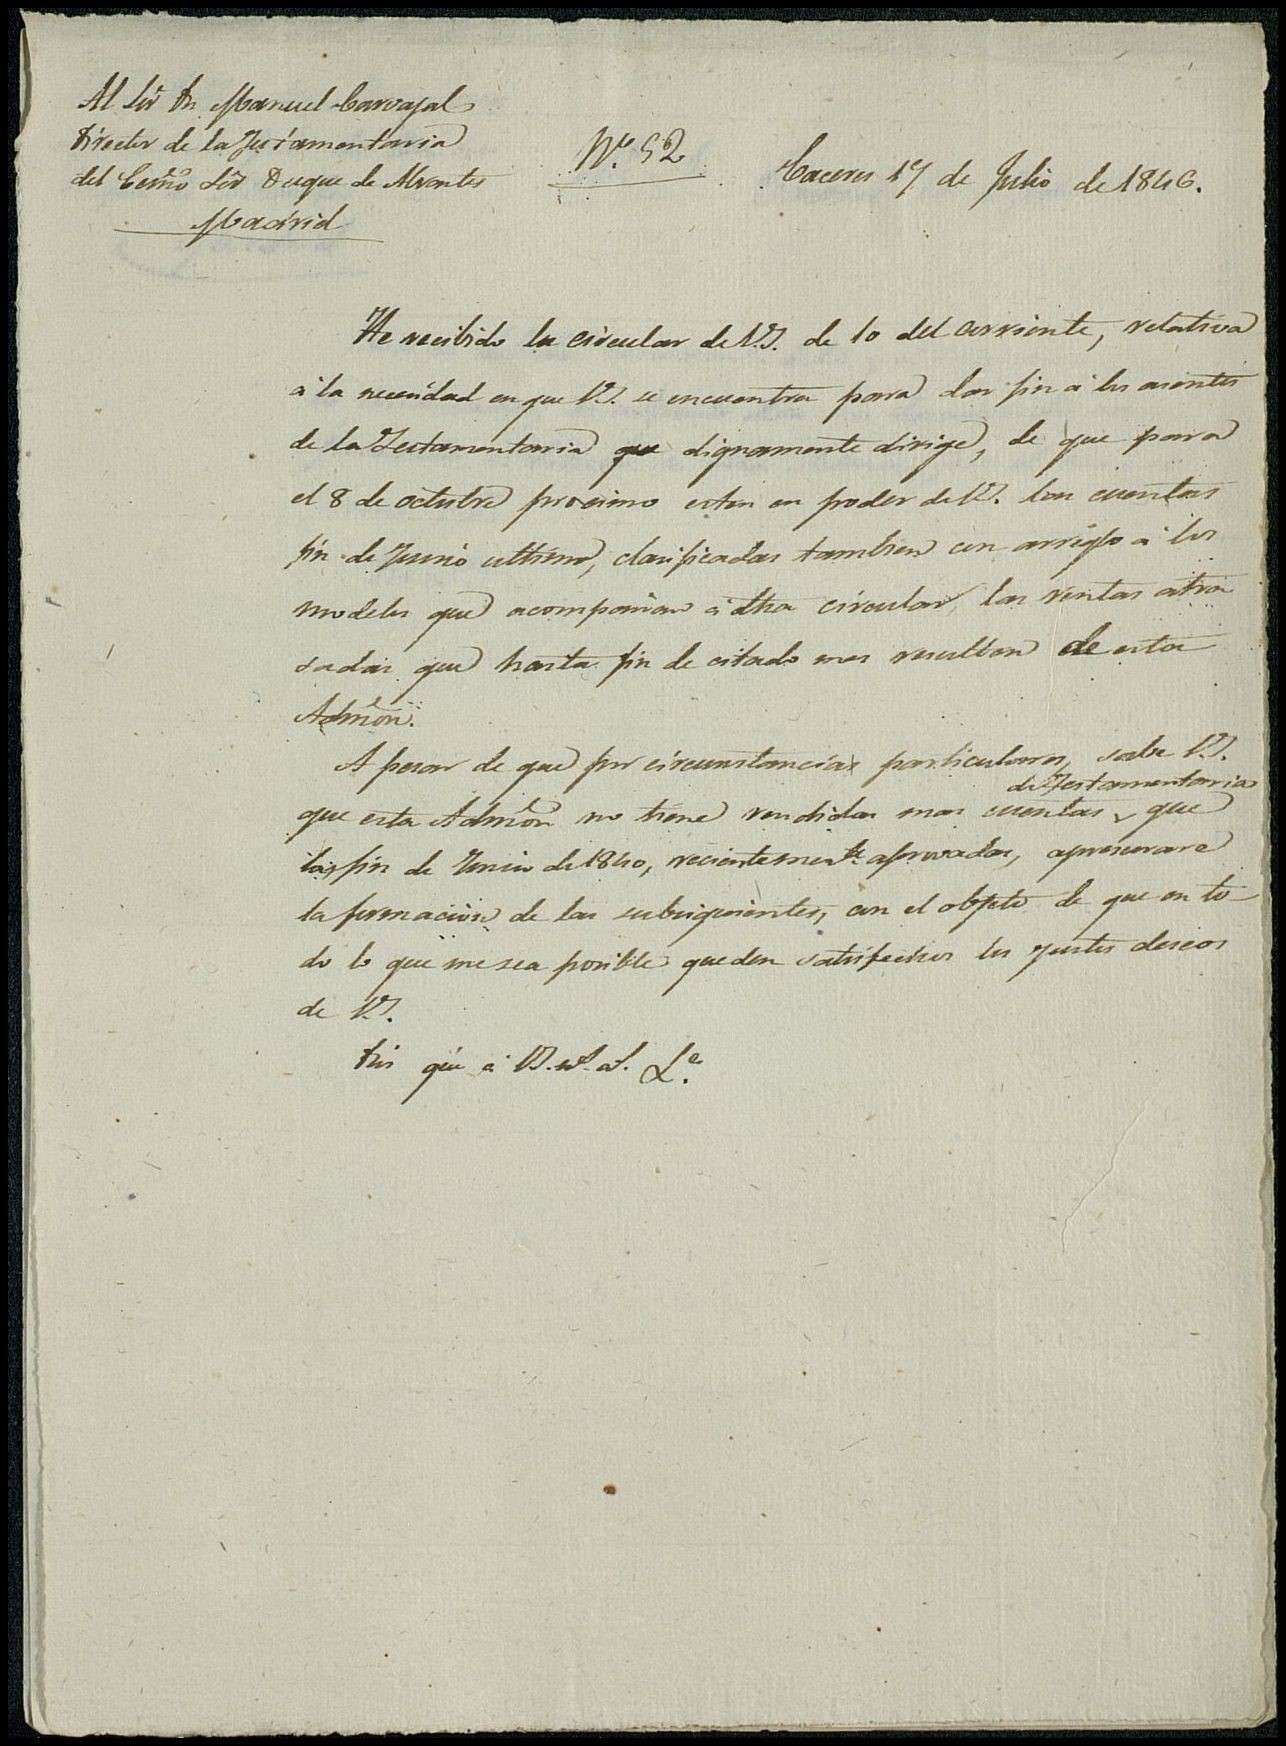 Al Sor Dn Manuel Carvajal
Director de la Testamentaria
del Ecsmo Sor Duque de Abrantes
Madrid
No. 52
Caceres 17 de Julio de 1846.
He recibido la circular de V.S. de 10 del corriente, relativa
á la necesidad en que V.S. se encuentra para dar fin á los asuntos
de la Testamentaria que dignamente dirige, de que para
el 8 de octubre procsimo esten en poder de V.S. las cuentas
fin de Junio ultimo, clasificadas tambien con arreglo á los
modelos que acompañan á dha circular, las rentas atra
sadas que hasta fin de citado mes resultan de esta
Admon.
A pesar de que por circunstancias particulares, sabe V.S.
que esta Admon no tiene rendidas mas cuentas de Testamentaria que
las fin de Junio de 1840, recientemte aprovadas, apresurare
la formacion de las subsiguientes, con el objeto de que en to
do lo que me sea posible queden satisfechos los justos deseos
de V.S.
Dios gue á V.S. ms. as. La.